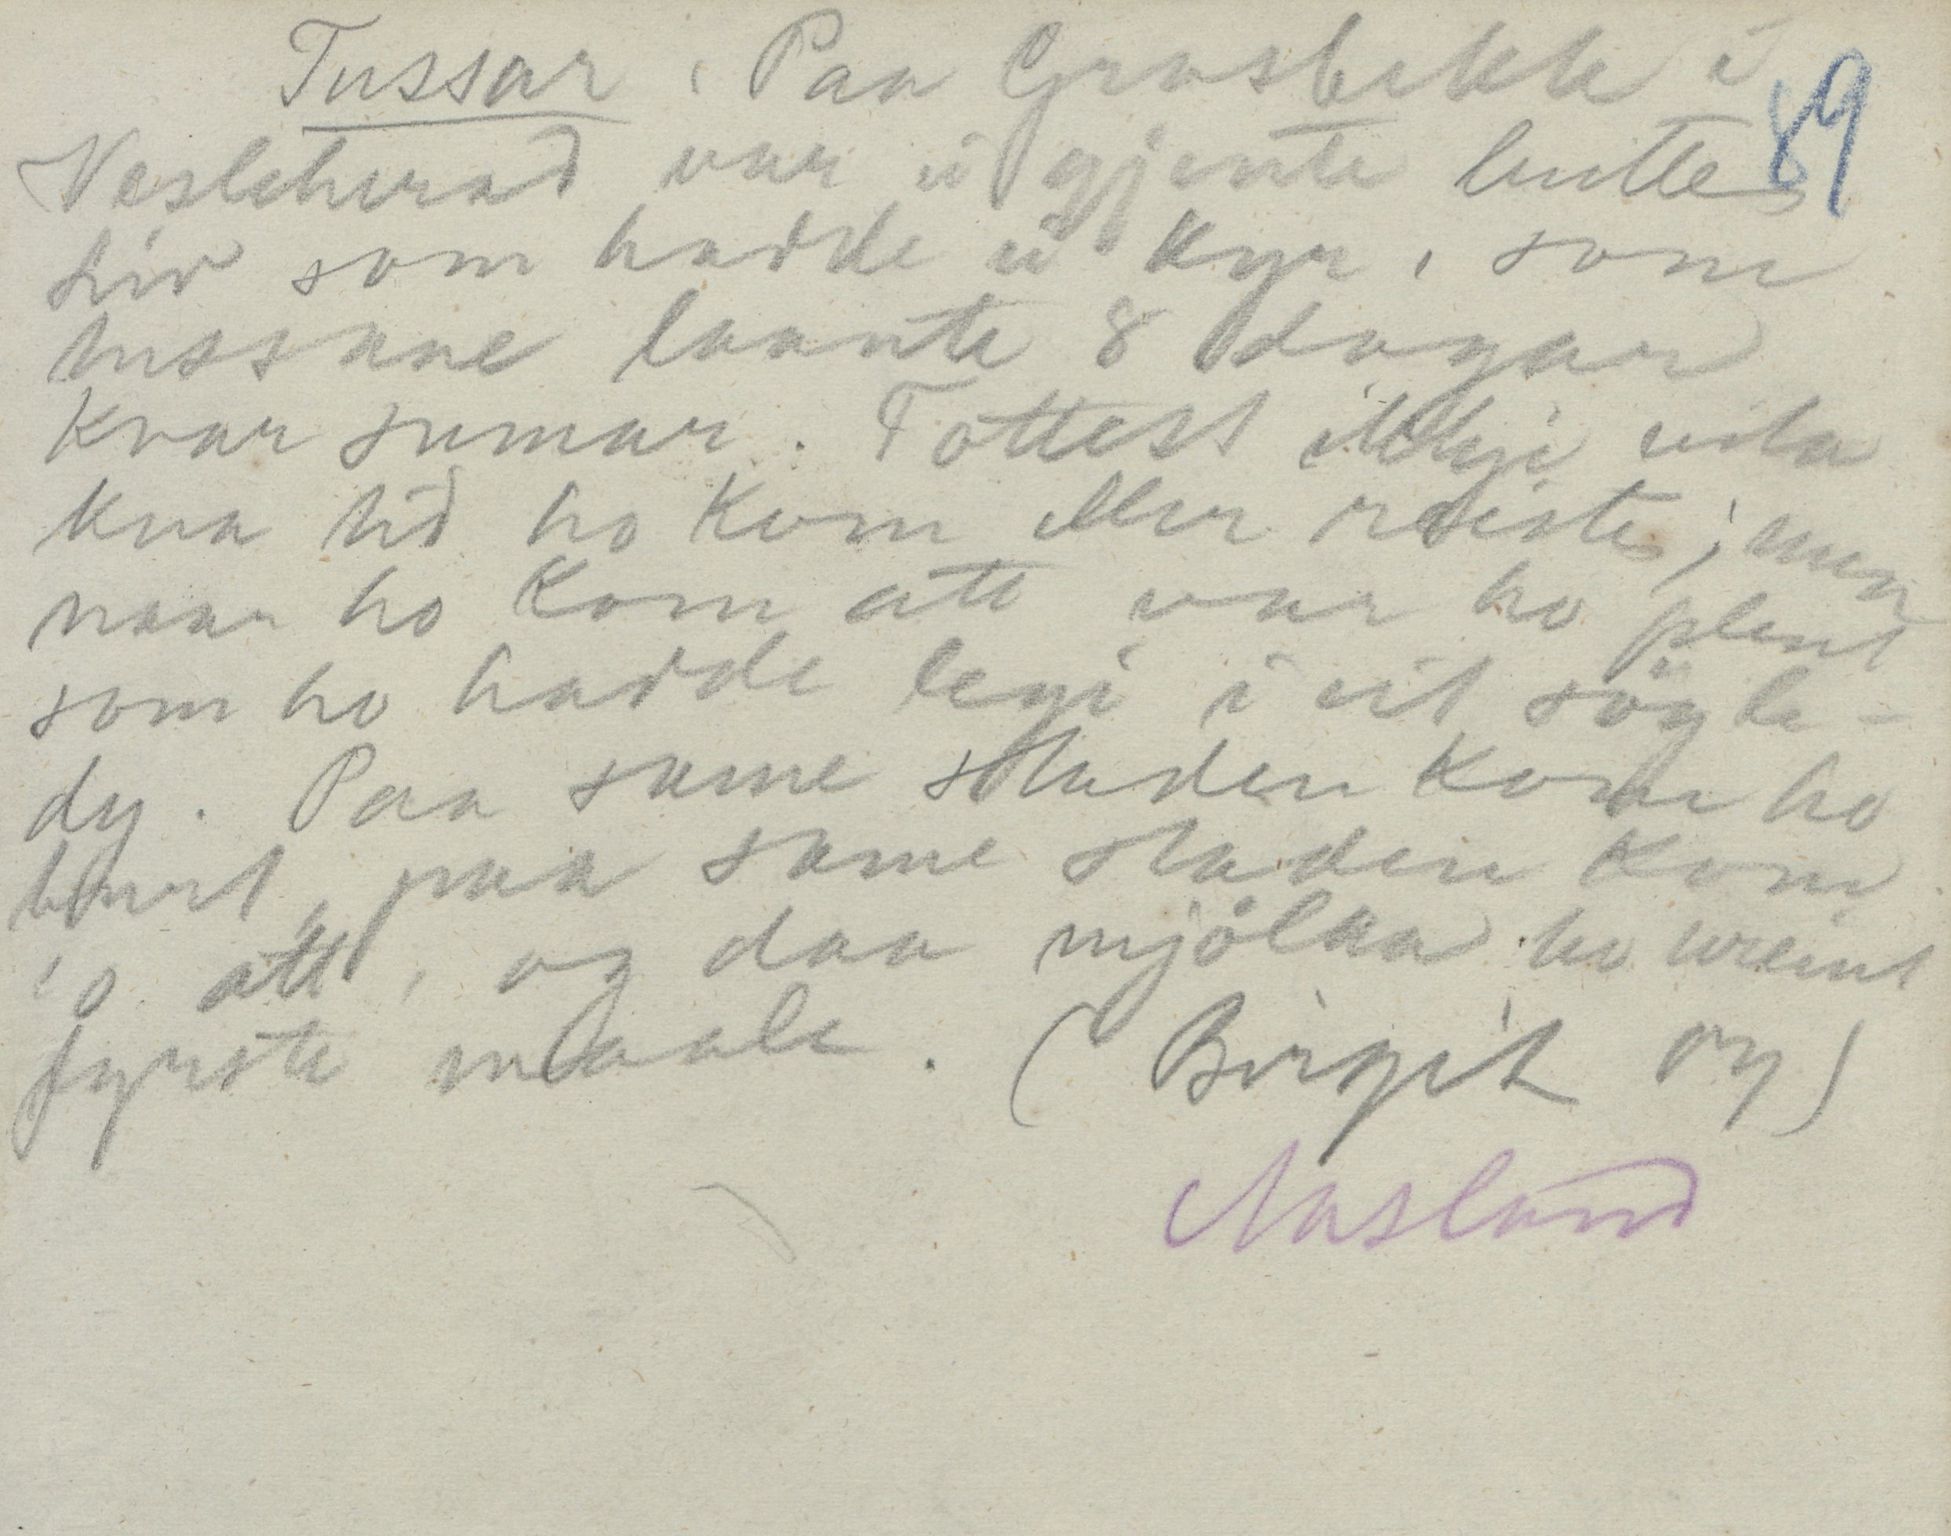 Tussar, Paa Grasbekk i
89
Vesleherad var ei gjente heitte
Liv som hadde ei kyr, som
tussane laante 8 dagar
kvar sumar. Tottest ikkje vita
kva tid ho kom eller reiste; men
naar ho kom att var ho plent
som ho hadde legi i eit søyle-
dy. Paa same staden kom ho
burt, paa same staden kom
'o att, og daa mjólka ho
fyrste maale. (Birgit Øy)
Aasland